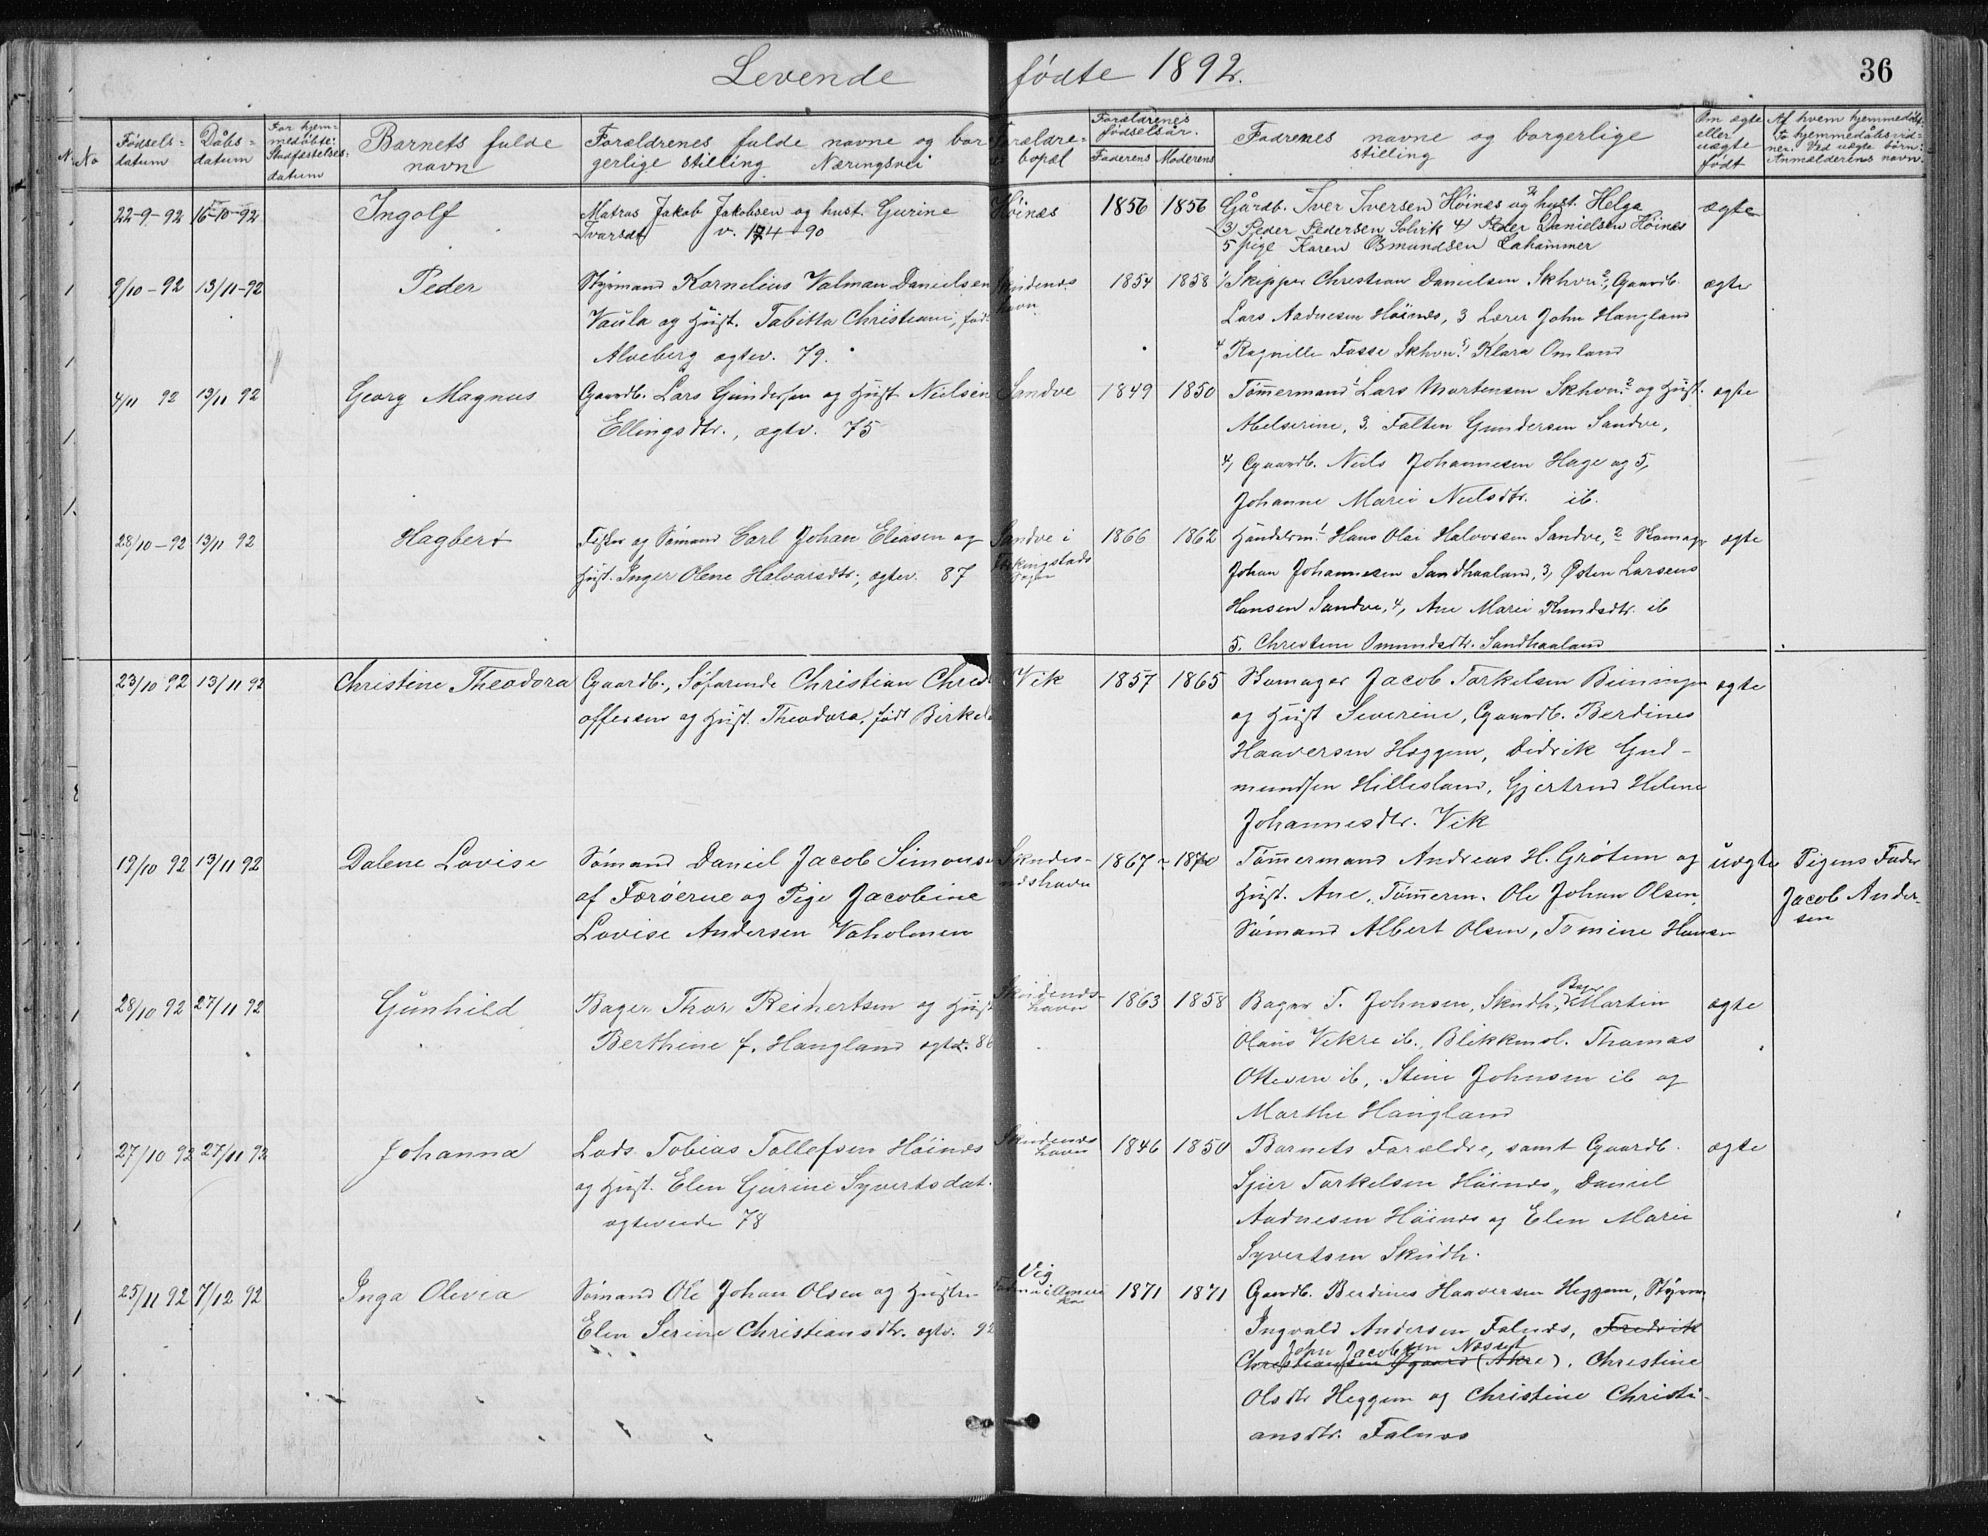 Levende fødte 1892.
36
No
Fødsels-
datum
Dåbs-
datum
For hjem-
medøbte:
Stadfæstelses-
datum
Barnets fulde
navn
Forældrenes fulde navne og bor
gerlige stilling Næringsvei
Forældre-
bopæl
Forældrenes
fødselsår.
Faderens Moderens
Fadrenes navne og borgerlige
stilling
Om ægte
eller
uægte
født
Af hvem hjemmedøbt
To hjemmedåbsvid-
ner. Ved uægte børn:
Anmelderens navn.
22-9-92 16-10-92
Ingolf
Matros Jakob Jakobsen og hust. Gurine
Svarsdt v. 90
Høines
1856 1856
Gårdb. Iver Iversen Høines og 2 hust. Helga
3) Peder Pedersen Solvik 4) Peder Danielsen Høines
5 pige Karen Osmundsen Lahammer
ægte
9/10-92 13/11-92
Peder
Styrmand Kornelius Valman Danielsen
Vaula og Hust. Tabitta Christiani, født
Alveberg ægtev. 79.
Skudenes
havn
1854 1858
1) Skipper Christian Danielsen Skhvn 2, Gaardb.
Lars Aadnesen Høines, 3 Lærer John Hangland
4 Ragnille Fosse Skhvn. 5) Klara Omland
ægte
4/11 92 13/11 92
Georg Magnus
Gaardb. Lars Gundersen og Hust Nielsine
Ellingsdtr., ægtv. 75
Sandve
1849 1850
Tømmermand 1 Lars Mortensen Skhvn. 2 og Hust.
Abelserine, 3. Falten Gundersen Sandve,
4, Gaardb. Nils Johannesen Hage og 5,
Johanne Marie Nielsdtr. ib.
ægte
28/10-92 13/11 92
Hagbert
Fisker og Sømand Carl Johan Eliasen og
Hust. Inger Olene Halvorsdtr, ægtev. 87
Sandve i
Ferkingstads
Sogn
1866 1862
Handelsm. 1 Hans Olai Halvorsen Sandve, 2 Skomager
Johan Johannesen Sandhaaland, 3, Østen Larsens
Hansen Sandve, 4, Ane Marie Knudsdtr. ib
5. Christine Omundsdtr. Sandhaaland
ægte
23/10 92 13/11 92
Christine Theodora
Gaardb., Søfarende Christian Christ
offersen og Hust. Theodora, født Birkel
Vik
1857 1865
Skomager Jacob Torkelsen Beiningen
og Hust Severine, Gaardb. Berdines
Haaversen Heggem, Didrik Gud-
mundsen Hillesland, Gjertrud Helene
Johannesdtr. Vik
ægte
19/10 92 13/11 92
Dalene Lovise
Sømand Daniel Jacob Simonse
af Færøerne og Pige Jacobine
Lovise Andersen Vaholmen
Skudes-
neshavn
1867 1870
Tømmermand Andreas H. Grøtum og
Hust. Ane, Tømmerm. Ole Johan Olsen,
Sømand Albert Olsen, Tomine Hansen
uægte
Pigens Fader
Jacob Ander-
sen
28/10 92 27/11 92
Gunhild
Bager Thor Reinertsen og Hust
Berthine f. Hangland ægtv. 86
Skudenes-
havn
1863 1858
Bager T. Johnsen, Skudh., Bager Martin
Olaus Vikre ib., Blikkensl. Thomas
Ottesen ib, Stine Johnsen ib og
Marthe Haugland
ægte
27/10 92 27/11 92
Johanna
Lods Tobias Tollefsen Høines
og Hust. Elen Gurine Syvertsdat.
ægteviede 78
Skudenes
havn
1846 1850
Barnets Forældre, samt Gaardb.
Sjur Torkelsen Høines, Daniel
Aadnesen Høines og Elen Marie
Syvertsen Skudh.
ægte
25/11 92 7/12 92
Inga Olivia
Sømand Ole Johan Olsen og Hustru
Elen Serine Christiansdtr. ægtv. 92
Vig
Faderen i Ameri
ka
1871 1871
Gaardb. Berdines Haaversen Heggem, Styrm.
Ingvald Andersen Falnes, Fredrik
John Jacobsen Nesset
Christiansen Øgaard (Akre). Christine
Olsdtr Heggem og Christine Christi-
ansdtr. Falnes